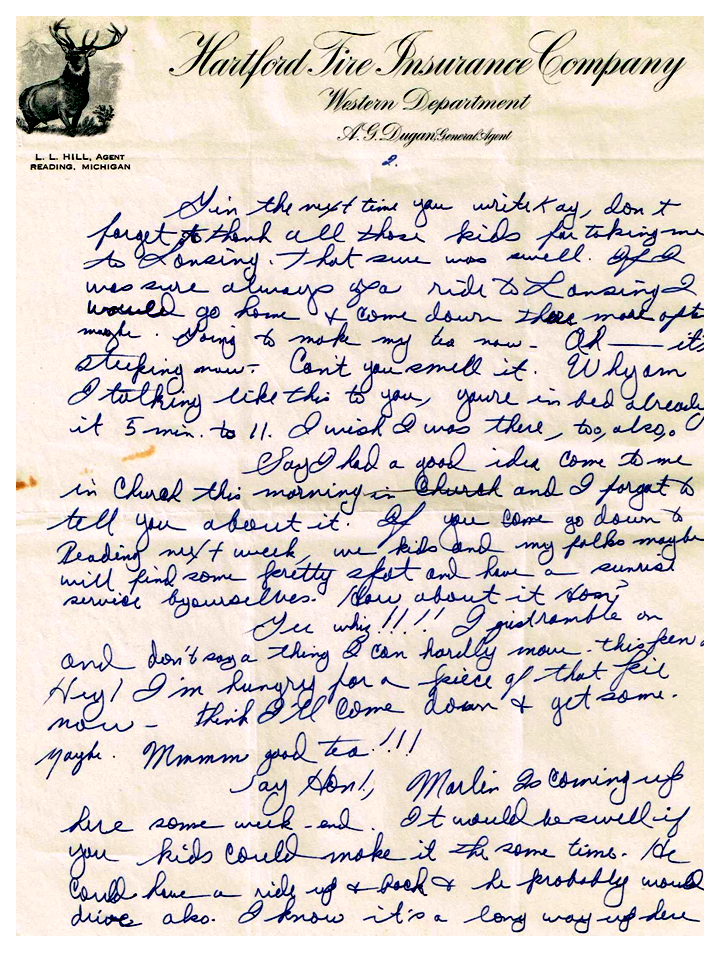 Hartford Fire Insurance Company
Western Department
A.G. Dugan, General Agent
L. L. HILL, AGENT
READING, MICHIGAN
2.
the next time you write Kay, don't
forget to thank all those kids for taking me
to Lansing. That sure was swell. If I
was sure always of a ride to Lansing I
would go home & come down there more often
maybe. Going to make my tea now - Ah — it's
steeping now - Can't you smell it. Why am
I talking like this to you, you're in bed already
it 5 min. to 11. I wish I was there, too, also.
Say I had a good idea come to me
in Church this morning in Church and I forgot to
tell you about it. If you come go down to
Reading next week, we kids and my folks maybe
will find some pretty spot and have a sunrise
service by ourselves. How about it Hon?
Gee whiz!!!! I just ramble on
and don't say a thing I can hardly move this pen
Hey! I'm hungry for a piece of that pie
now - think I'll come down & get some.
Maybe. Mmmm good tea!!!
Say Hon!, Marlin is coming up
here some week-end. It would be swell if
you kids could make it the same time. He
could have a ride up & back & he probably would
drive also. I know it's a long way up here